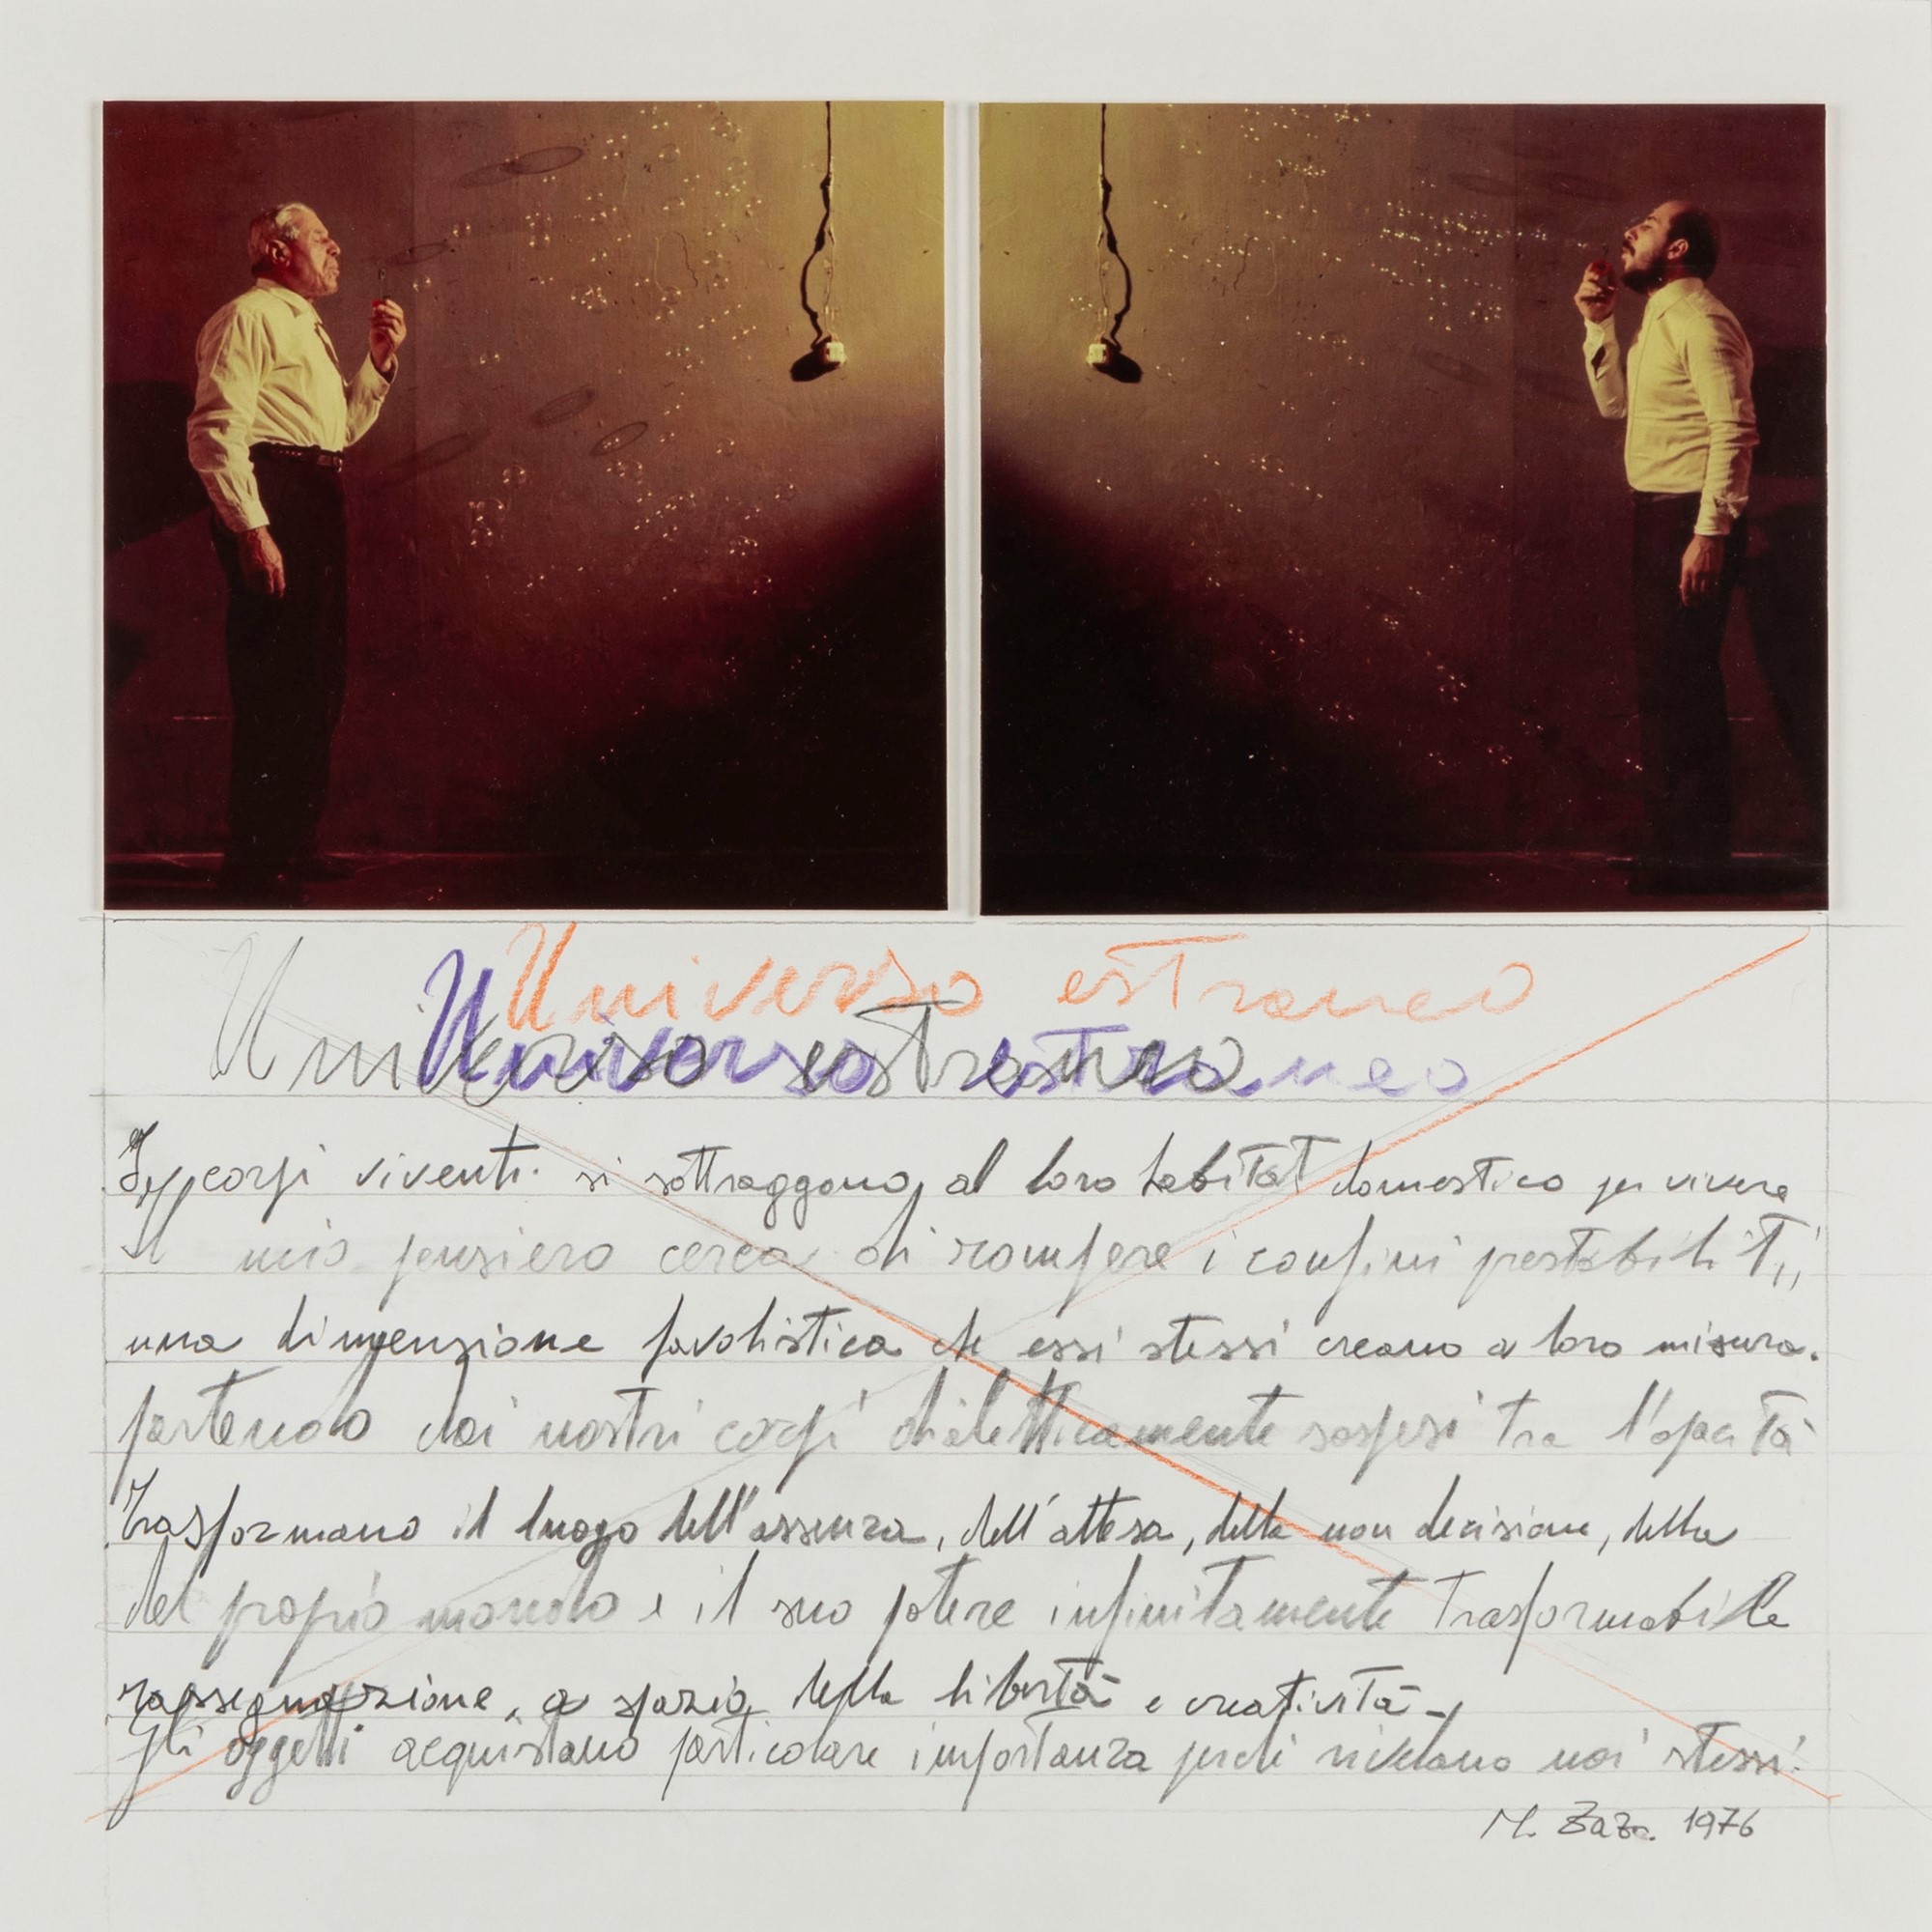 Universo estraneo
Universo estraneo
Universo estraneo
I corpi viventi si sottraggono al loro habitat domestico per vivere
Il mio pensiero cerca di rompere i confini prestabiliti,
una dimensione favolistica che essi stessi creano a loro misura.
partendo dai nostri corpi dialetticamente sospesi tra l'opacità
Trasformano il luogo dell'assenza, dell'attesa, della non decisione, della
del proprio mondo e il suo potere infinitamente trasformabile
rassegnazione, a spazio della libertà e creatività-
Gli oggetti acquistano particolare importanza perché rivelano noi stessi.
M. Zaza. 1976